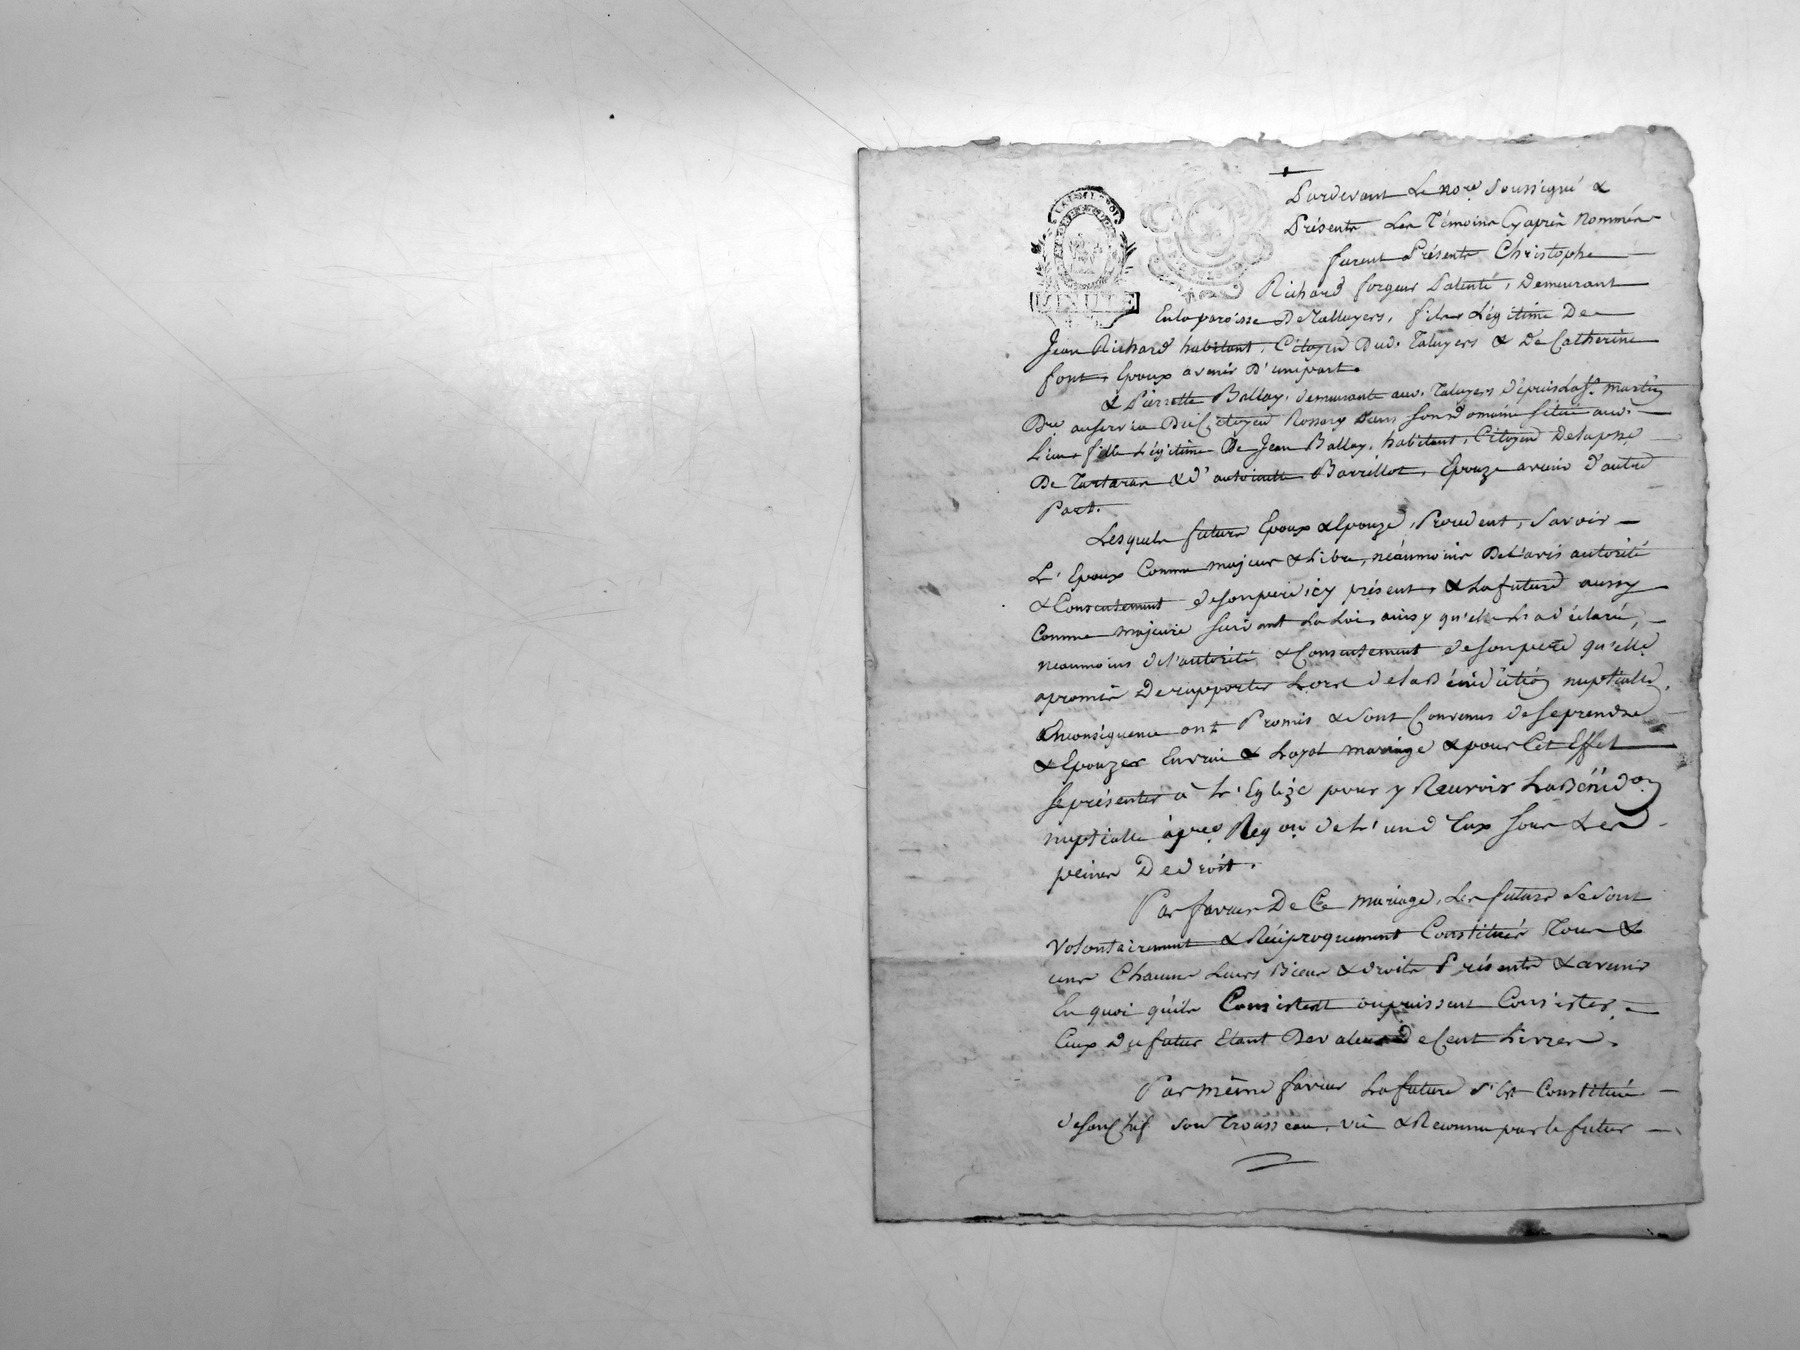 LA LOI ET LE ROI
MINUTE
Pardevant Le nore Soussigné &
Présents Les Témoins Cyaprès Nommés
furent Présents Christophe
Richard forgeur Patenté, Demeurant
En la paroisse De Talluyers, fils Légitime De
Jean Richard habitant, Citoyen Dud. Taluyers & De Catherine
font, Epoux avenir D'une part.
& Pierrette Ballay, demeurante aud. Taluyers depuis la St. Martin
Dre au service Du Citoyen Rossary Dans son domaine situé aud.
Lieu, fille Légitime De Jean Ballay, habitant, Citoyen De la psse
De Tartaras & d'antoinette Barrillot, Epouze avenir d'autre
Part.
Lesquels futurs Epoux & Epouze, Procedent, Savoir
L'Epoux Comme majeur & Libre, néaumoins De L'avis autorité
& Consentement de son pere icy présent, & La future aussy
Comme majeure suivant La Loi, ainsy qu'elle L'a déclaré,
neaumoins de l'autorité & Consentement de son pere qu'elle
a promis De rapporter Lors de la Bénédiction nuptialle,
En conséquence ont Promis & Sont Convenus de se prendre
& Epouzer En vrai & Loyal mariage & pour Cet Effet
se présenter à L'Eglize pour y Recevoir La Bénédon
nuptialle à la pre. Reqon de L'un d'Eux sous Les
peines De droit.
Par faveur De Ce mariage, Les futurs Se Sont
Volontairement & Réciproquement Constitués Tous &
uns Chacuns Leurs Biens & droits Présents & avenir
En quoi qu'ils Consistent ou puissent Consister,
Ceux du futur Etant De valeur de Cent Livres.
Par même faveur La future S'est Constituée
de son Chef son Trousseau, vu & Reconnu par le futur